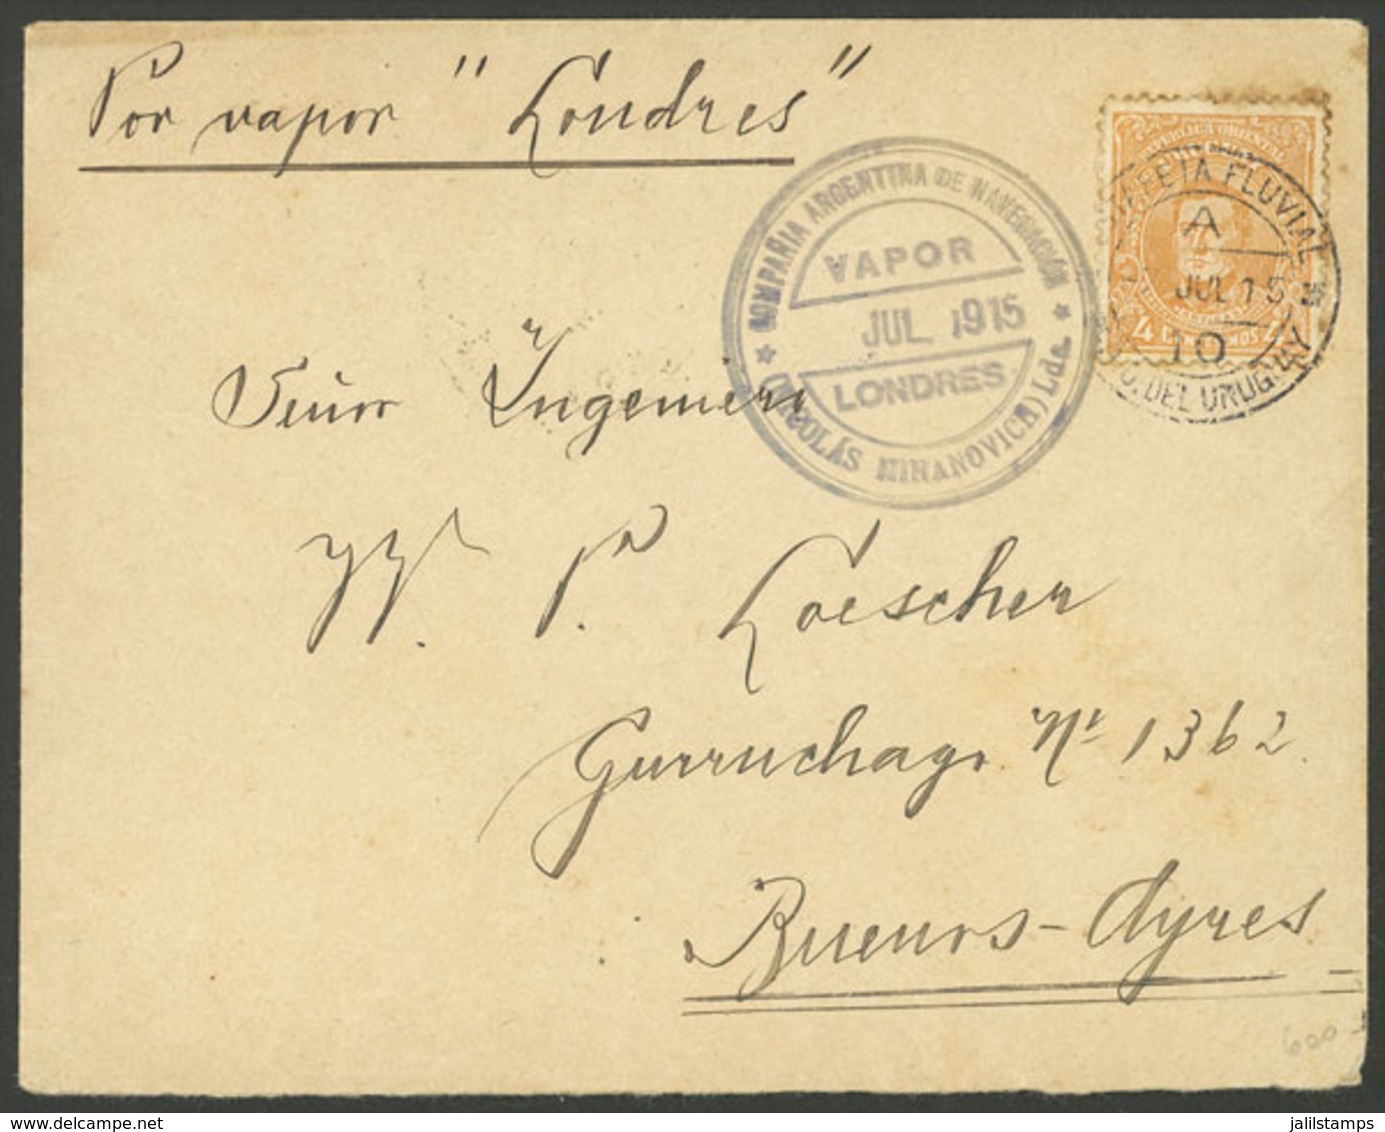 Por vapor "Londres"
REPUBLICA ORIENTAL
4
FETA FLUVIAL
A
JUL 15
10
DEL URUGUAY
COMPAÑIA ARGENTINA DE NAVEGACIÓN
VAPOR
JUL 1915
LONDRES
(NICOLÁS MIHANOVICH) Lda.
Señor Ingeniero
W. P. Loescher
Gurruchaga Nº 1362
Buenos-Ayres
600
jalilstamps
delcampe.net